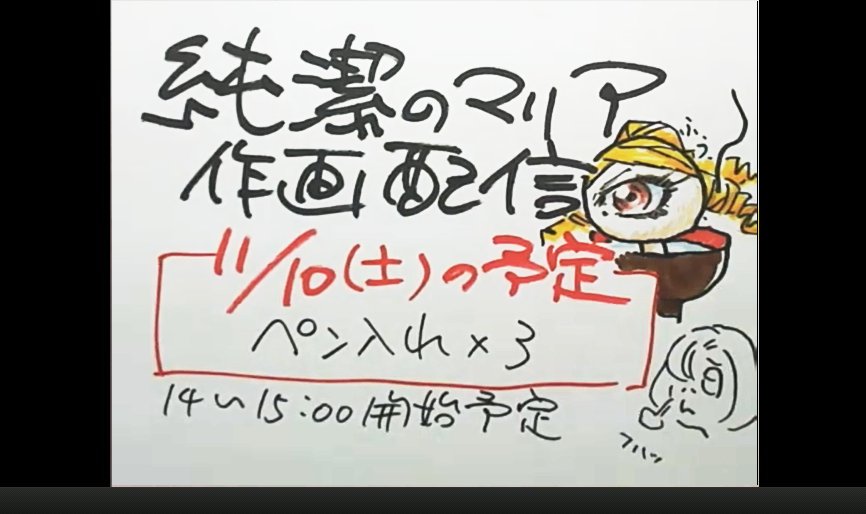 純潔のマリア
作画配信
11/10(土)の予定
ペン入れ×3
14~15:00開始予定
フハッ